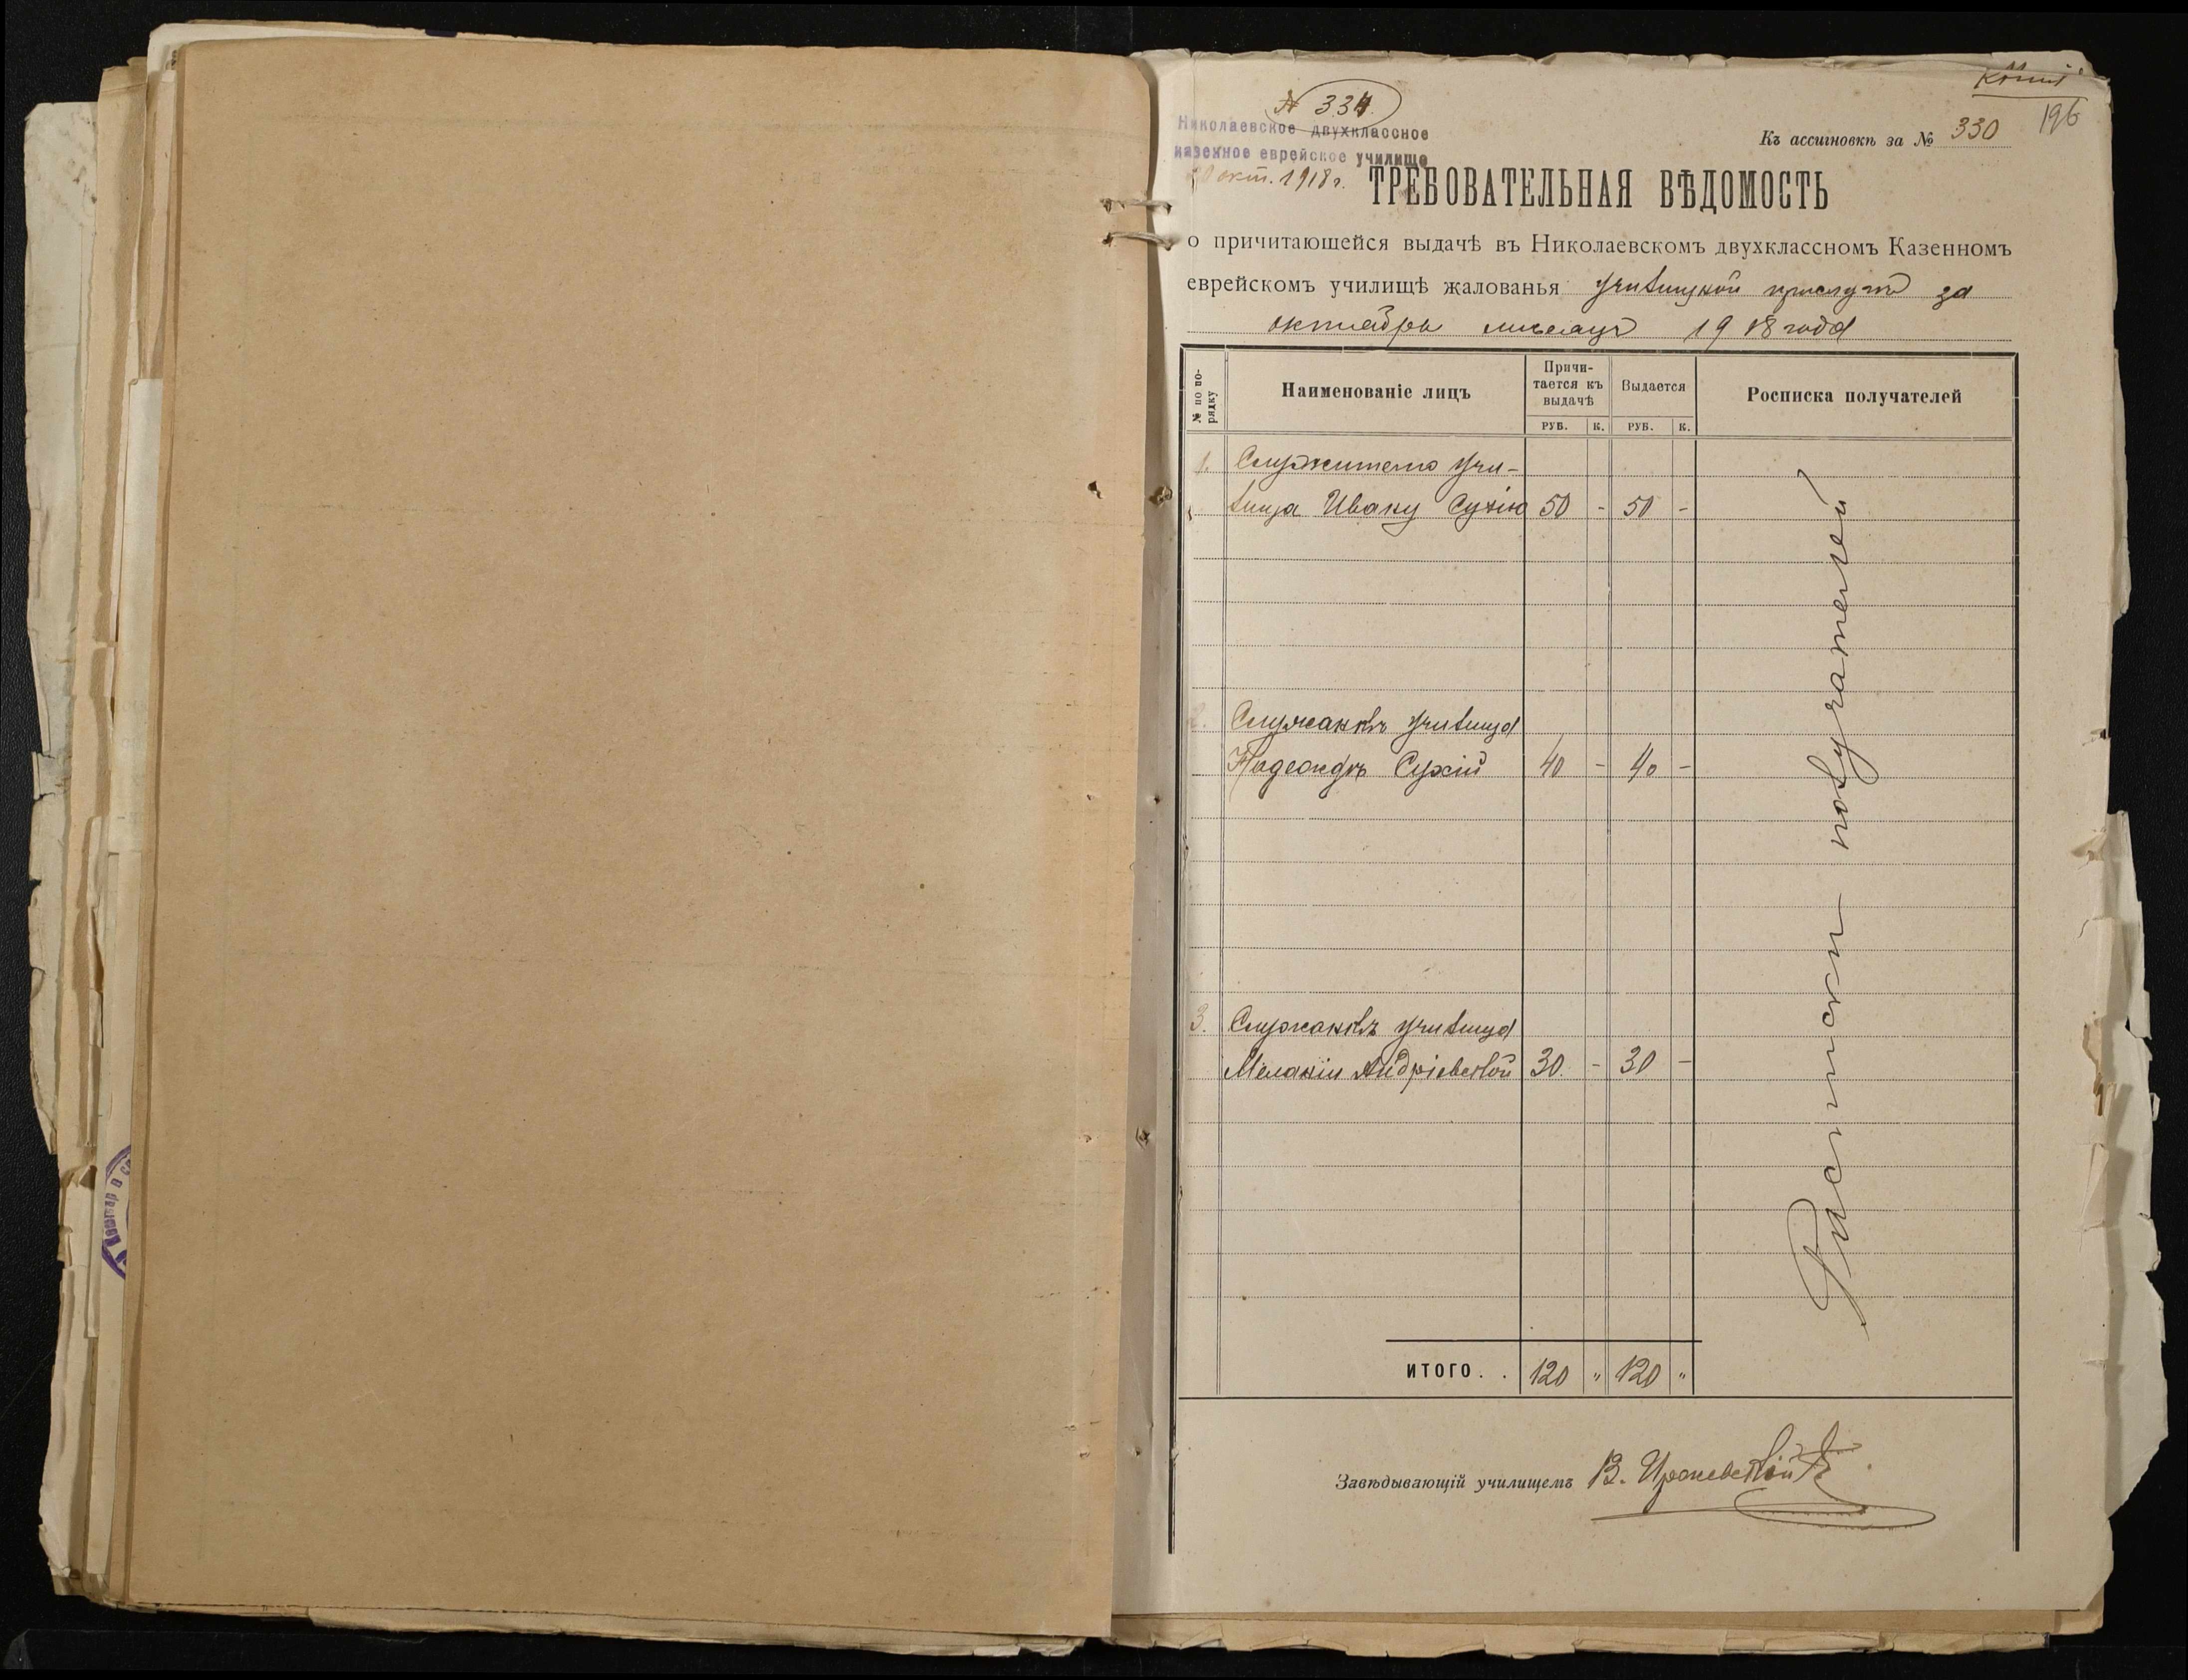 Копія
196
№ 334.
Николаевское двухклассное
казенное еврейское училище
окт. 1918 г.
Къ ассигновкѣ за № 330
ТРЕБОВАТЕЛЬНАЯ ВѢДОМОСТЬ
о причитающейся выдачѣ въ Николаевскомъ двухклассномъ Казенномъ
еврейскомъ училищѣ жалованья училищной прислугѣ за
октябрь мѣсяцъ 1918 года
№ по порядку
Наименованіе лицъ
Причитается къ выдачѣ
Выдается
Росписка получателей
РУБ. К. РУБ. К.
1. Служителю учи-
лища Ивану Сухію 50 - 50 -
2. Служанкѣ училища
Надеждѣ Сухій 40 - 40 -
3. Служанкѣ училища
Меланіи Андріевской 30. - 30 -
Расписки получателей
ИТОГО. . 120 " 120 "
Завѣдывающій училищемъ В.